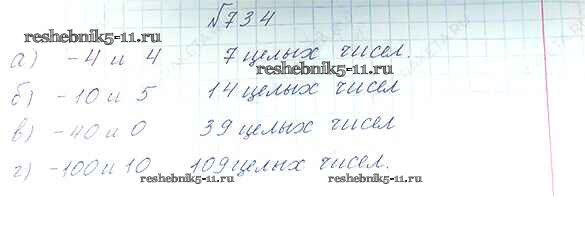 №734
reshebnik5-11.ru
а) -4 и 4 7 целых чисел.
reshebnik5-11.ru
б) -10 и 5 14 целых чисел
в) -40 и 0 39 целых чисел
г) -100 и 10 109 целых чисел.
reshebnik5-11.ru reshebnik5-11.ru